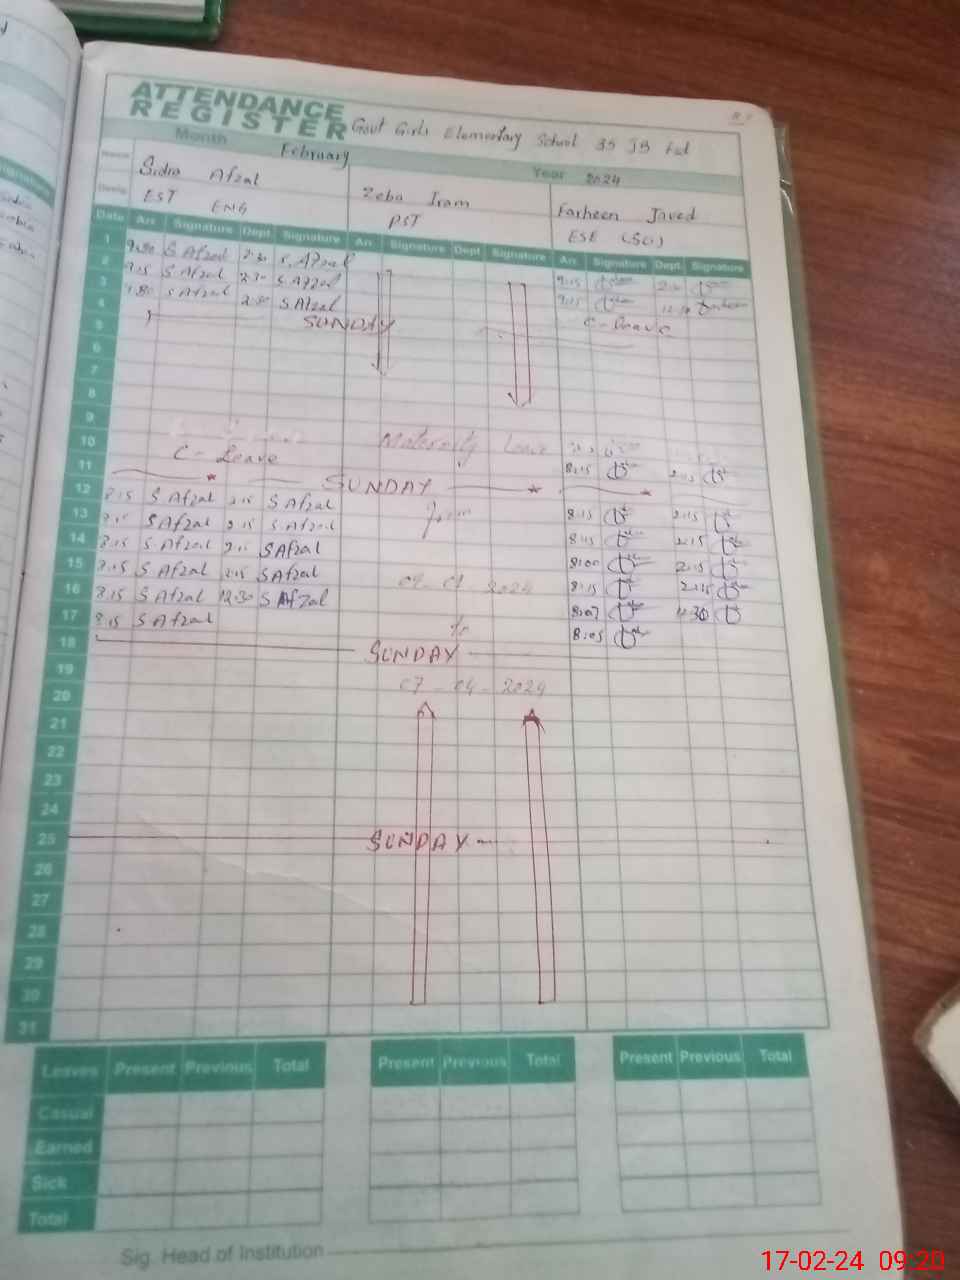 ATTENDANCE
REGISTER Govt Girls Elementary School 35 JB Fsd
Month February Year 2024
Name Sidra Afzal Zeba Iram Farheen Javed
Desig EST ENG PST ESE (Sci)
Date Arr. Signature Dept Signature Arr. Signature Dept Signature Arr. Signature Dept. Signature
1 9:30 S Afzal 2:30 S. Afzal
2 9:15 S Afzal 2:30 S Afzal 9:15
3 S Afzal 2:30 S Afzal 9:15
4 SUNDAY C-Leave
5
6
7
8
9
10 C-Leave Maternity Leave 8:15 2:15
11 SUNDAY
12 8:15 S Afzal 2:15 S Afzal From 8:15 2:15
13 S Afzal 2:15 S Afzal 8:15 2:15
14 8:15 S Afzal S Afzal 8:00 2:15
15 8:15 S Afzal 2:15 S Afzal 2024 8:15 2:15
16 8:15 S Afzal 12:30 S Afzal to 8:07
17 8:15 S Afzal 8:05
18 SUNDAY
19 07-04-2024
20
21
22
23
24
25 SUNDAY
26
27
28
29
30
31
Leaves Present Previous Total Present Previous Total Present Previous Total
Casual
Earned
Sick
Total
Sig. Head of Institution
17-02-24 09:20